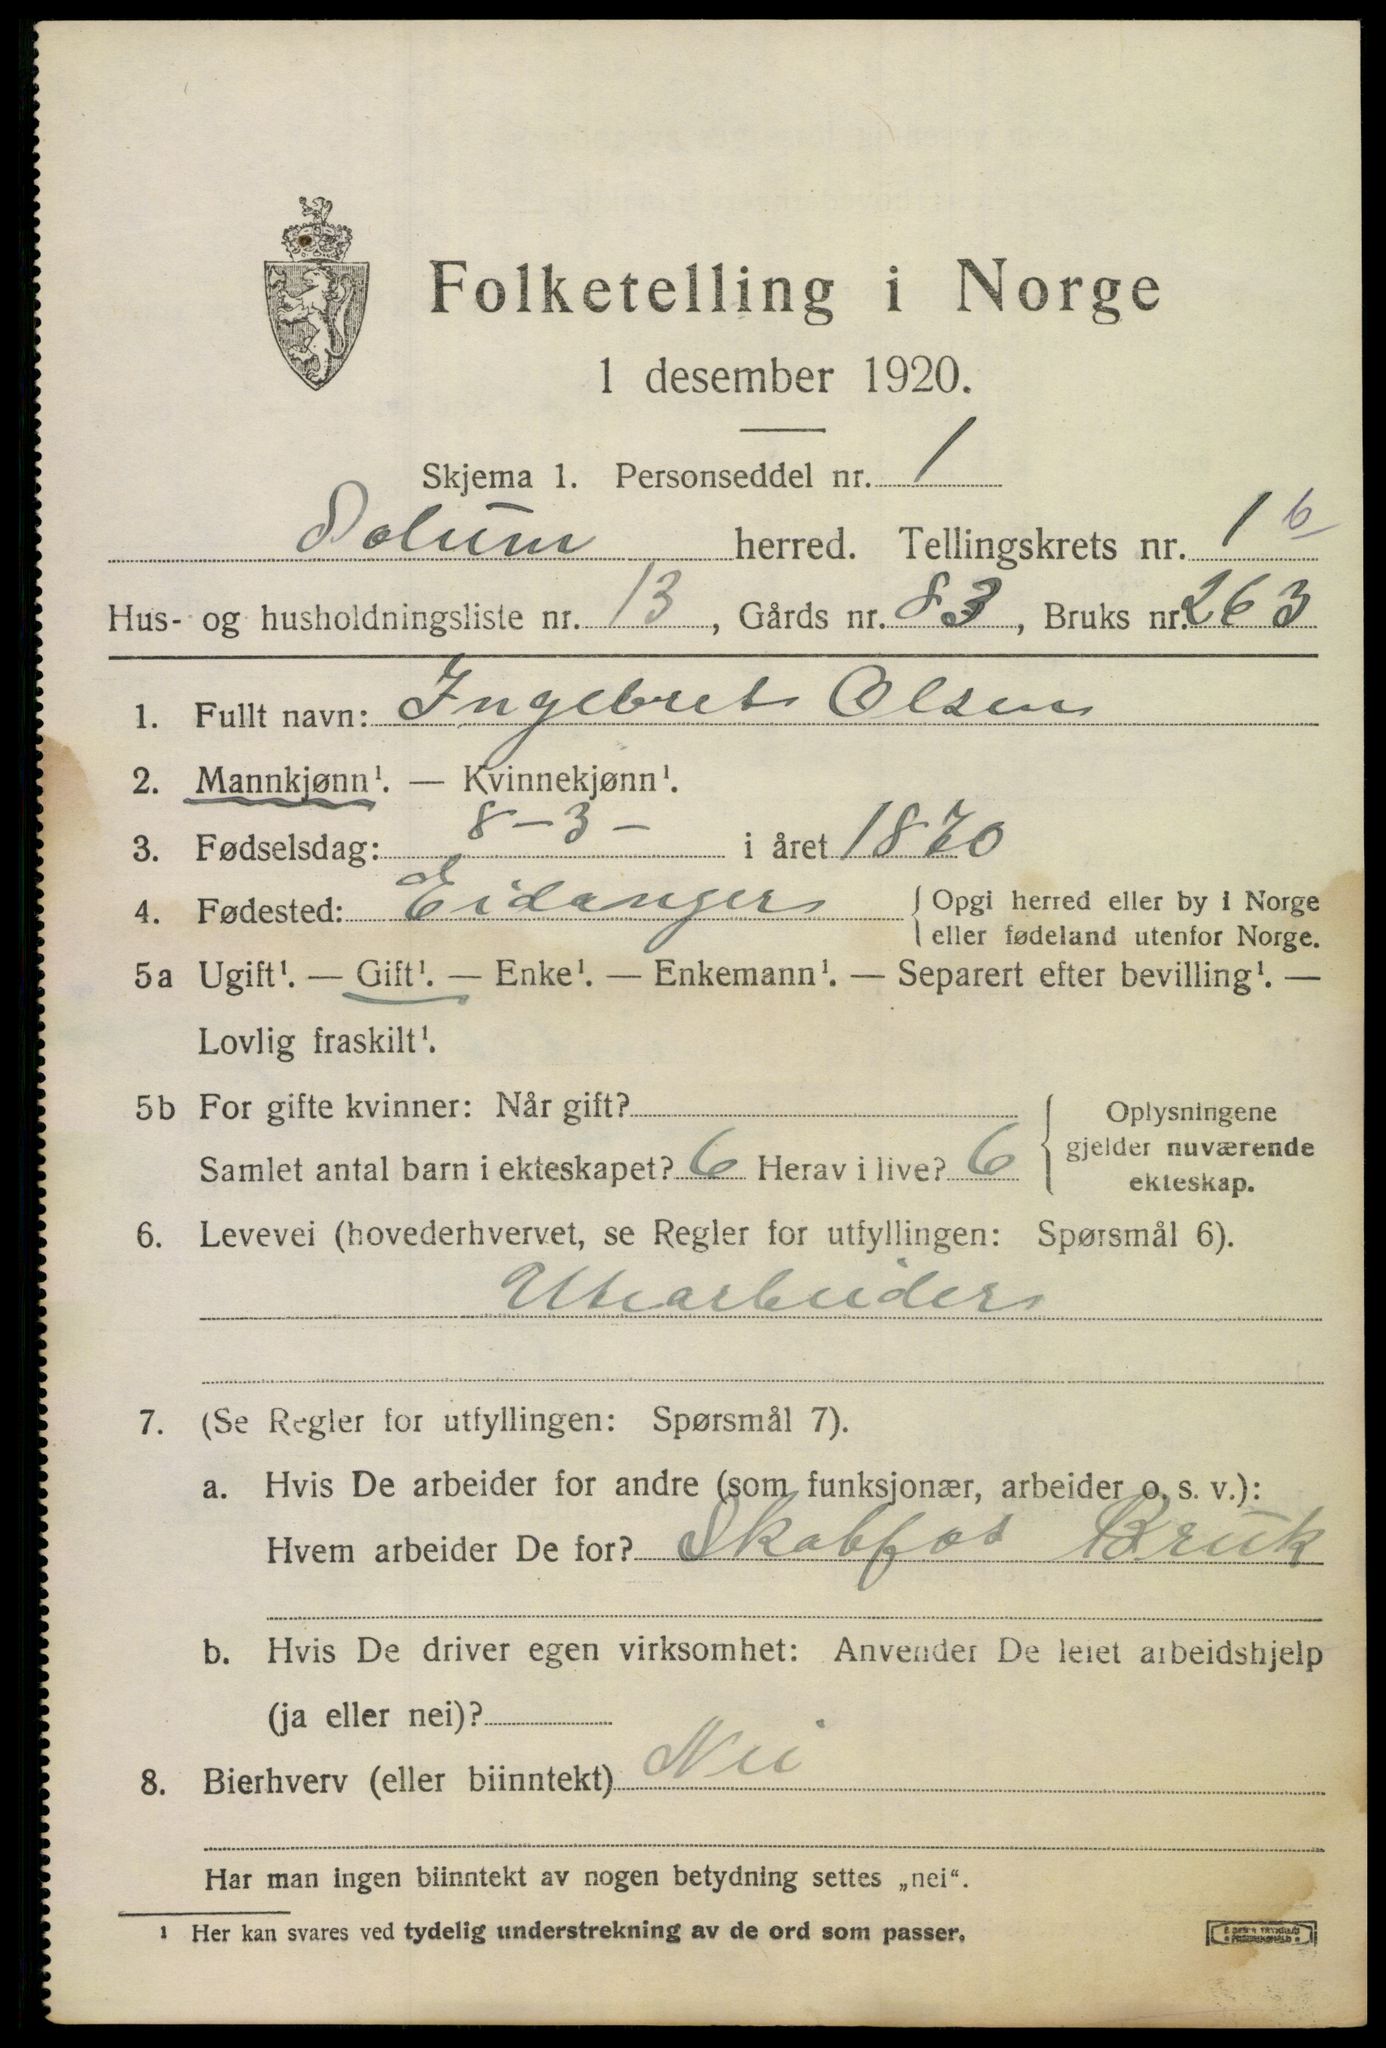 Folketelling i Norge
1 desember 1920.
Skjema 1. Personseddel nr. 1
Solum herred. Tellingskrets nr. 1 b
Hus- og husholdningsliste nr. 13, Gårds nr. 83, Bruks nr. 263
1. Fullt navn: Ingebret Olsen
2. Mannkjønn¹. — Kvinnekjønn¹.
3. Fødselsdag: 8-3- i året 1870
4. Fødested: Eidanger { Opgi herred eller by i Norge
eller fødeland utenfor Norge.
5a Ugift¹. — Gift¹. — Enke¹. — Enkemann¹. — Separert efter bevilling¹. —
Lovlig fraskilt¹.
5b For gifte kvinner: Når gift? { Oplysningene
gjelder nuværende
ekteskap.
Samlet antal barn i ekteskapet? 6 Herav i live? 6
6. Levevei (hovederhvervet, se Regler for utfyllingen: Spørsmål 6).
Utearbeider
7. (Se Regler for utfyllingen: Spørsmål 7).
a. Hvis De arbeider for andre (som funksjonær, arbeider o. s. v.):
Hvem arbeider De for? Skotfos Bruk
b. Hvis De driver egen virksomhet: Anvender De leiet arbeidshjelp
(ja eller nei)?
8. Bierhverv (eller biinntekt) Nei
Har man ingen biinntekt av nogen betydning settes „nei“.
1 Her kan svares ved tydelig understrekning av de ord som passer.